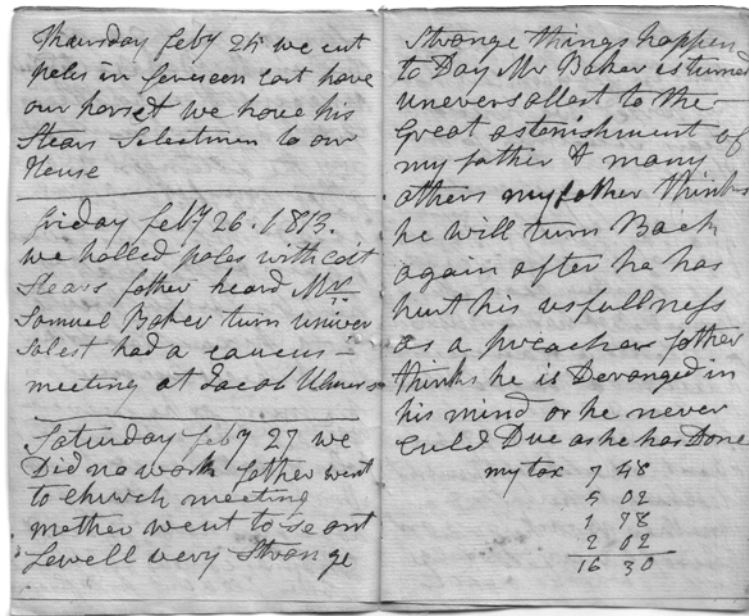 Thursday feby 25 we cut
poles in  cost have
our horse we have his
Stears Selectmen to our
House
friday feby 26. 1813.
we halled poles with cost
stears father heard Mr
Samuel Baker turn univer
salest had a caucus -
meeting at Jacob Ulmers
Saturday feby 27 we
Did no work father went
to church meeting
mother went to se ant
Sewell very Strange
Strange things happen
to Day Mr Baker is turned
uneversallest to the -
Great astonishment of
my father & many
others my father thinks
he will turn Back
again after he has
hurt his usfullness
as a preacher father
thinks he is Deranged in
his mind or he never
Culd Due as he has Done
my tax 7 48
5 02
1 78
2 02
16 30